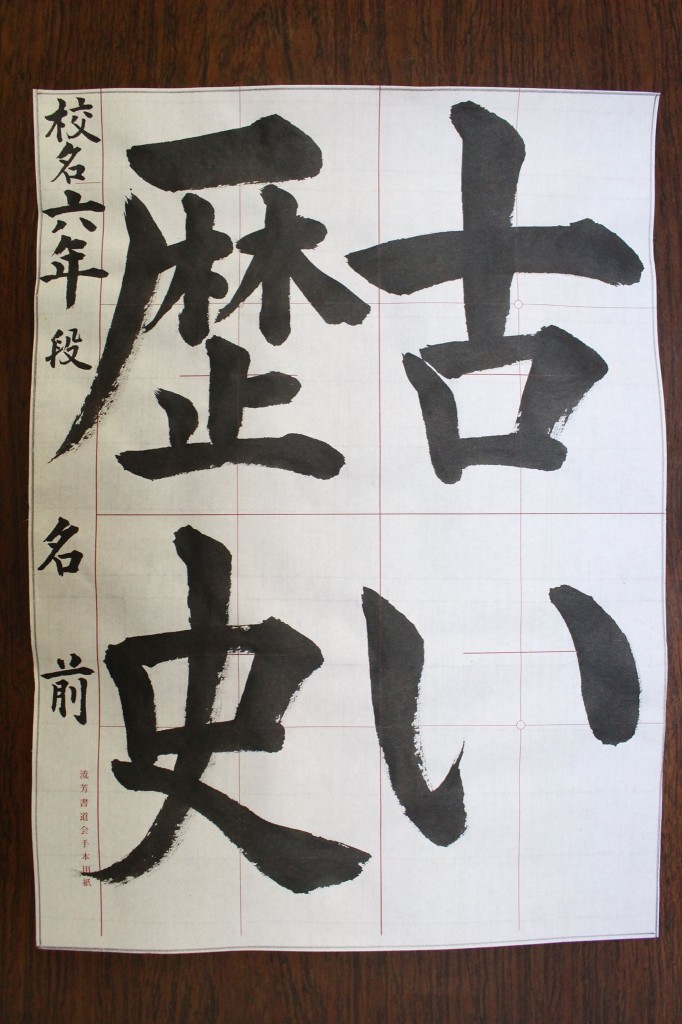 古い
歴史
校名六年 段 名前
流芳書道会手本用紙